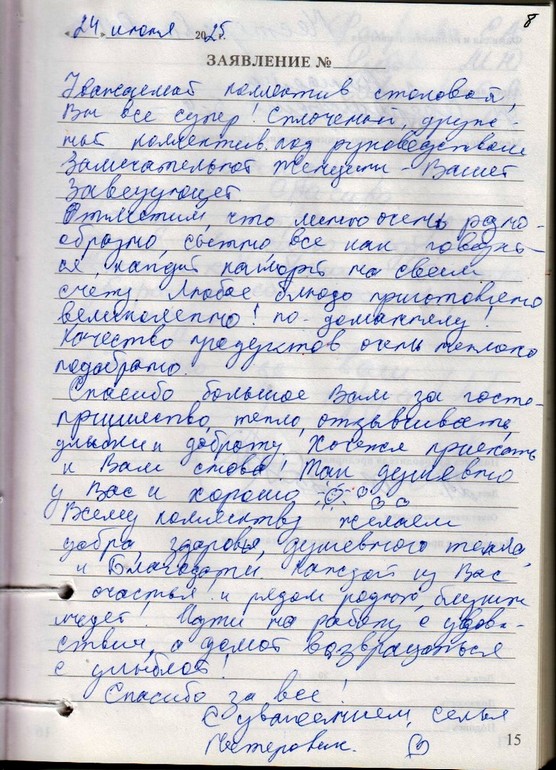 8
«24» июля 2025.
ЗАЯВЛЕНИЕ №
Уважаемый коллектив столовой,
Вы все супер! Сплоченый, друж-
ный коллектив под руководством
Замечательной Женщины - Вашей
Заведующей.
Отметим, что меню очень разно-
образно, сытно все как говорить-
ся, каждый калорий на своем
счету. Любое блюдо приготовлено
великолепно! по-домашнему!
Качество продуктов очень
подобрано.
Спасибо большое Вам за госте-
приимство, тепло, отзывчивать,
улыбки и доброту. Хочется приехать
к Вам снова! Так душевно
у Вас и хорошо
Всему коллективу желаем
добра, здоровья, душевного тепла,
и Благодарти. Каждой из Вас
счастья и рядом родных, близких
людей! Идти на работу с удово-
ствия, а домой возвращаться
с улыбкой!
Спасибо за все!
С уважением, семья
15